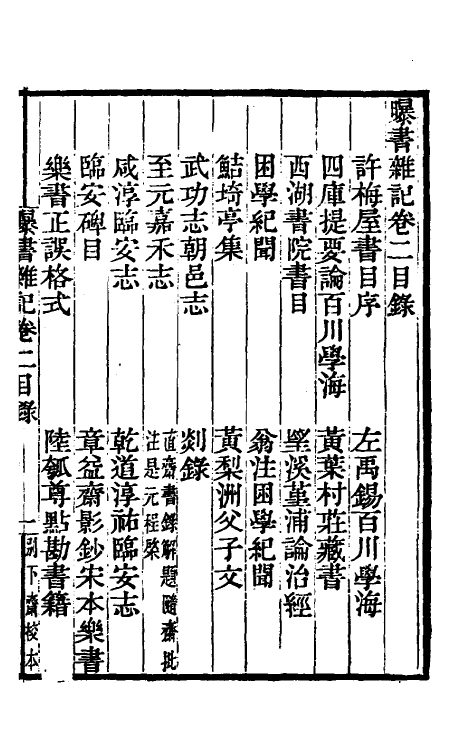 曝書雜記卷二目錄
許梅屋書目序　左禹錫百川學海
四庫提要論百川學海　黃葉村莊藏書
西湖書院書目　望溪堇浦論治經
困學紀聞　翁注困學紀聞
鮚埼亭集　黃梨洲父子文
武功志朝邑志　剡錄
至元嘉禾志　直齋書錄解題隨齋批注是元程棨
咸淳臨安志　乾道淳祐臨安志
臨安碑目　章益齋影鈔宋本樂書
樂書正誤格式　陸瓠尊點勘書籍
曝書雜記卷二目錄　一　別下齋校本